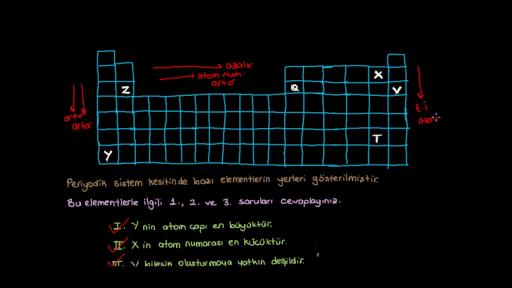 azalır
atom num.
artar
X
Z
Q
V
artar
artar
E.i
T
Y
Periyodik sistem kesitinde bazı elementlerin yerleri gösterilmiştir.
Bu elementlerle ilgili 1., 2. ve 3. soruları cevaplayınız.
I. Y nin atom çapı en büyüktür.
II. X in atom numarası en küçüktür.
III. V bileşik oluşturmaya yatkın değildir.